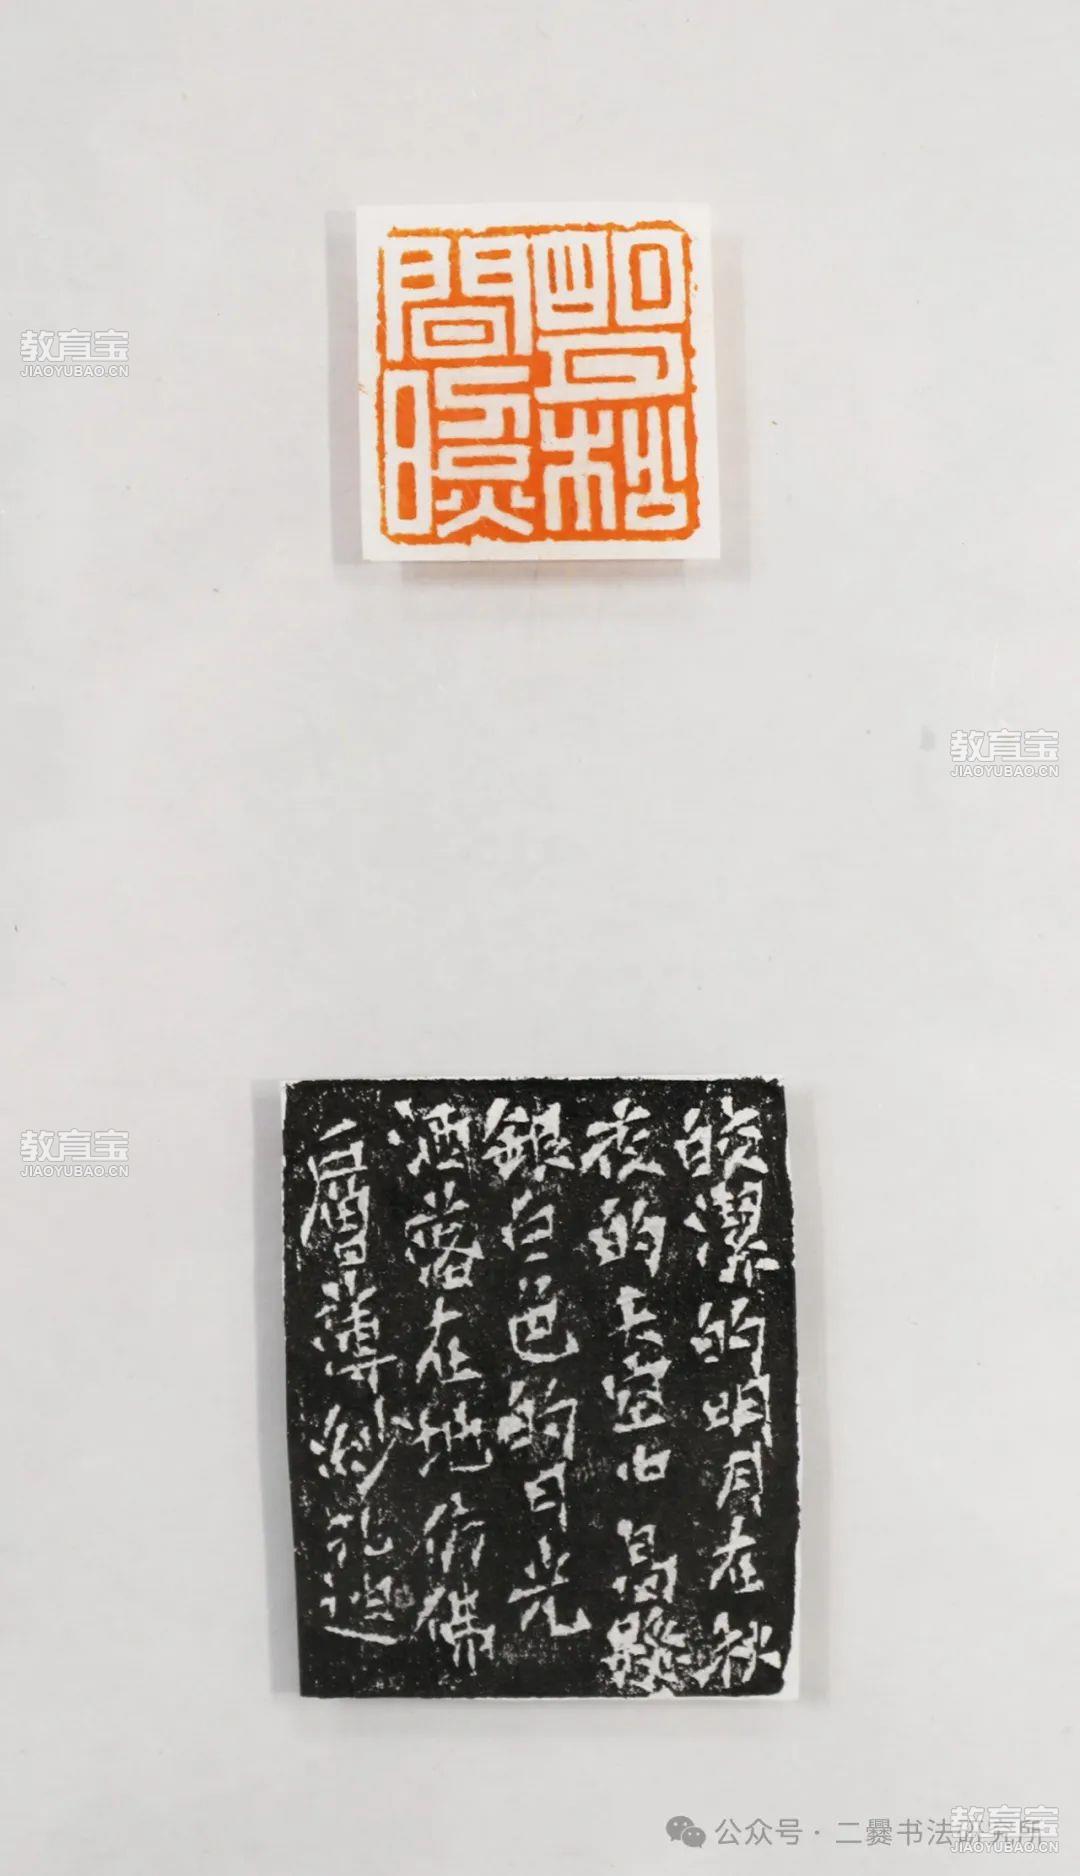 明月松
間照
教育宝
JIAOYUBAO.CN
教育宝
JIAOYUBAO.CN
皎潔的明月在秋
夜的天空中高懸
銀白色的月光
洒落在地仿佛
一層薄紗
教育宝
JIAOYUBAO.CN
教育宝
JIAOYUBAO.CN
公众号 · 二爨书法研究所